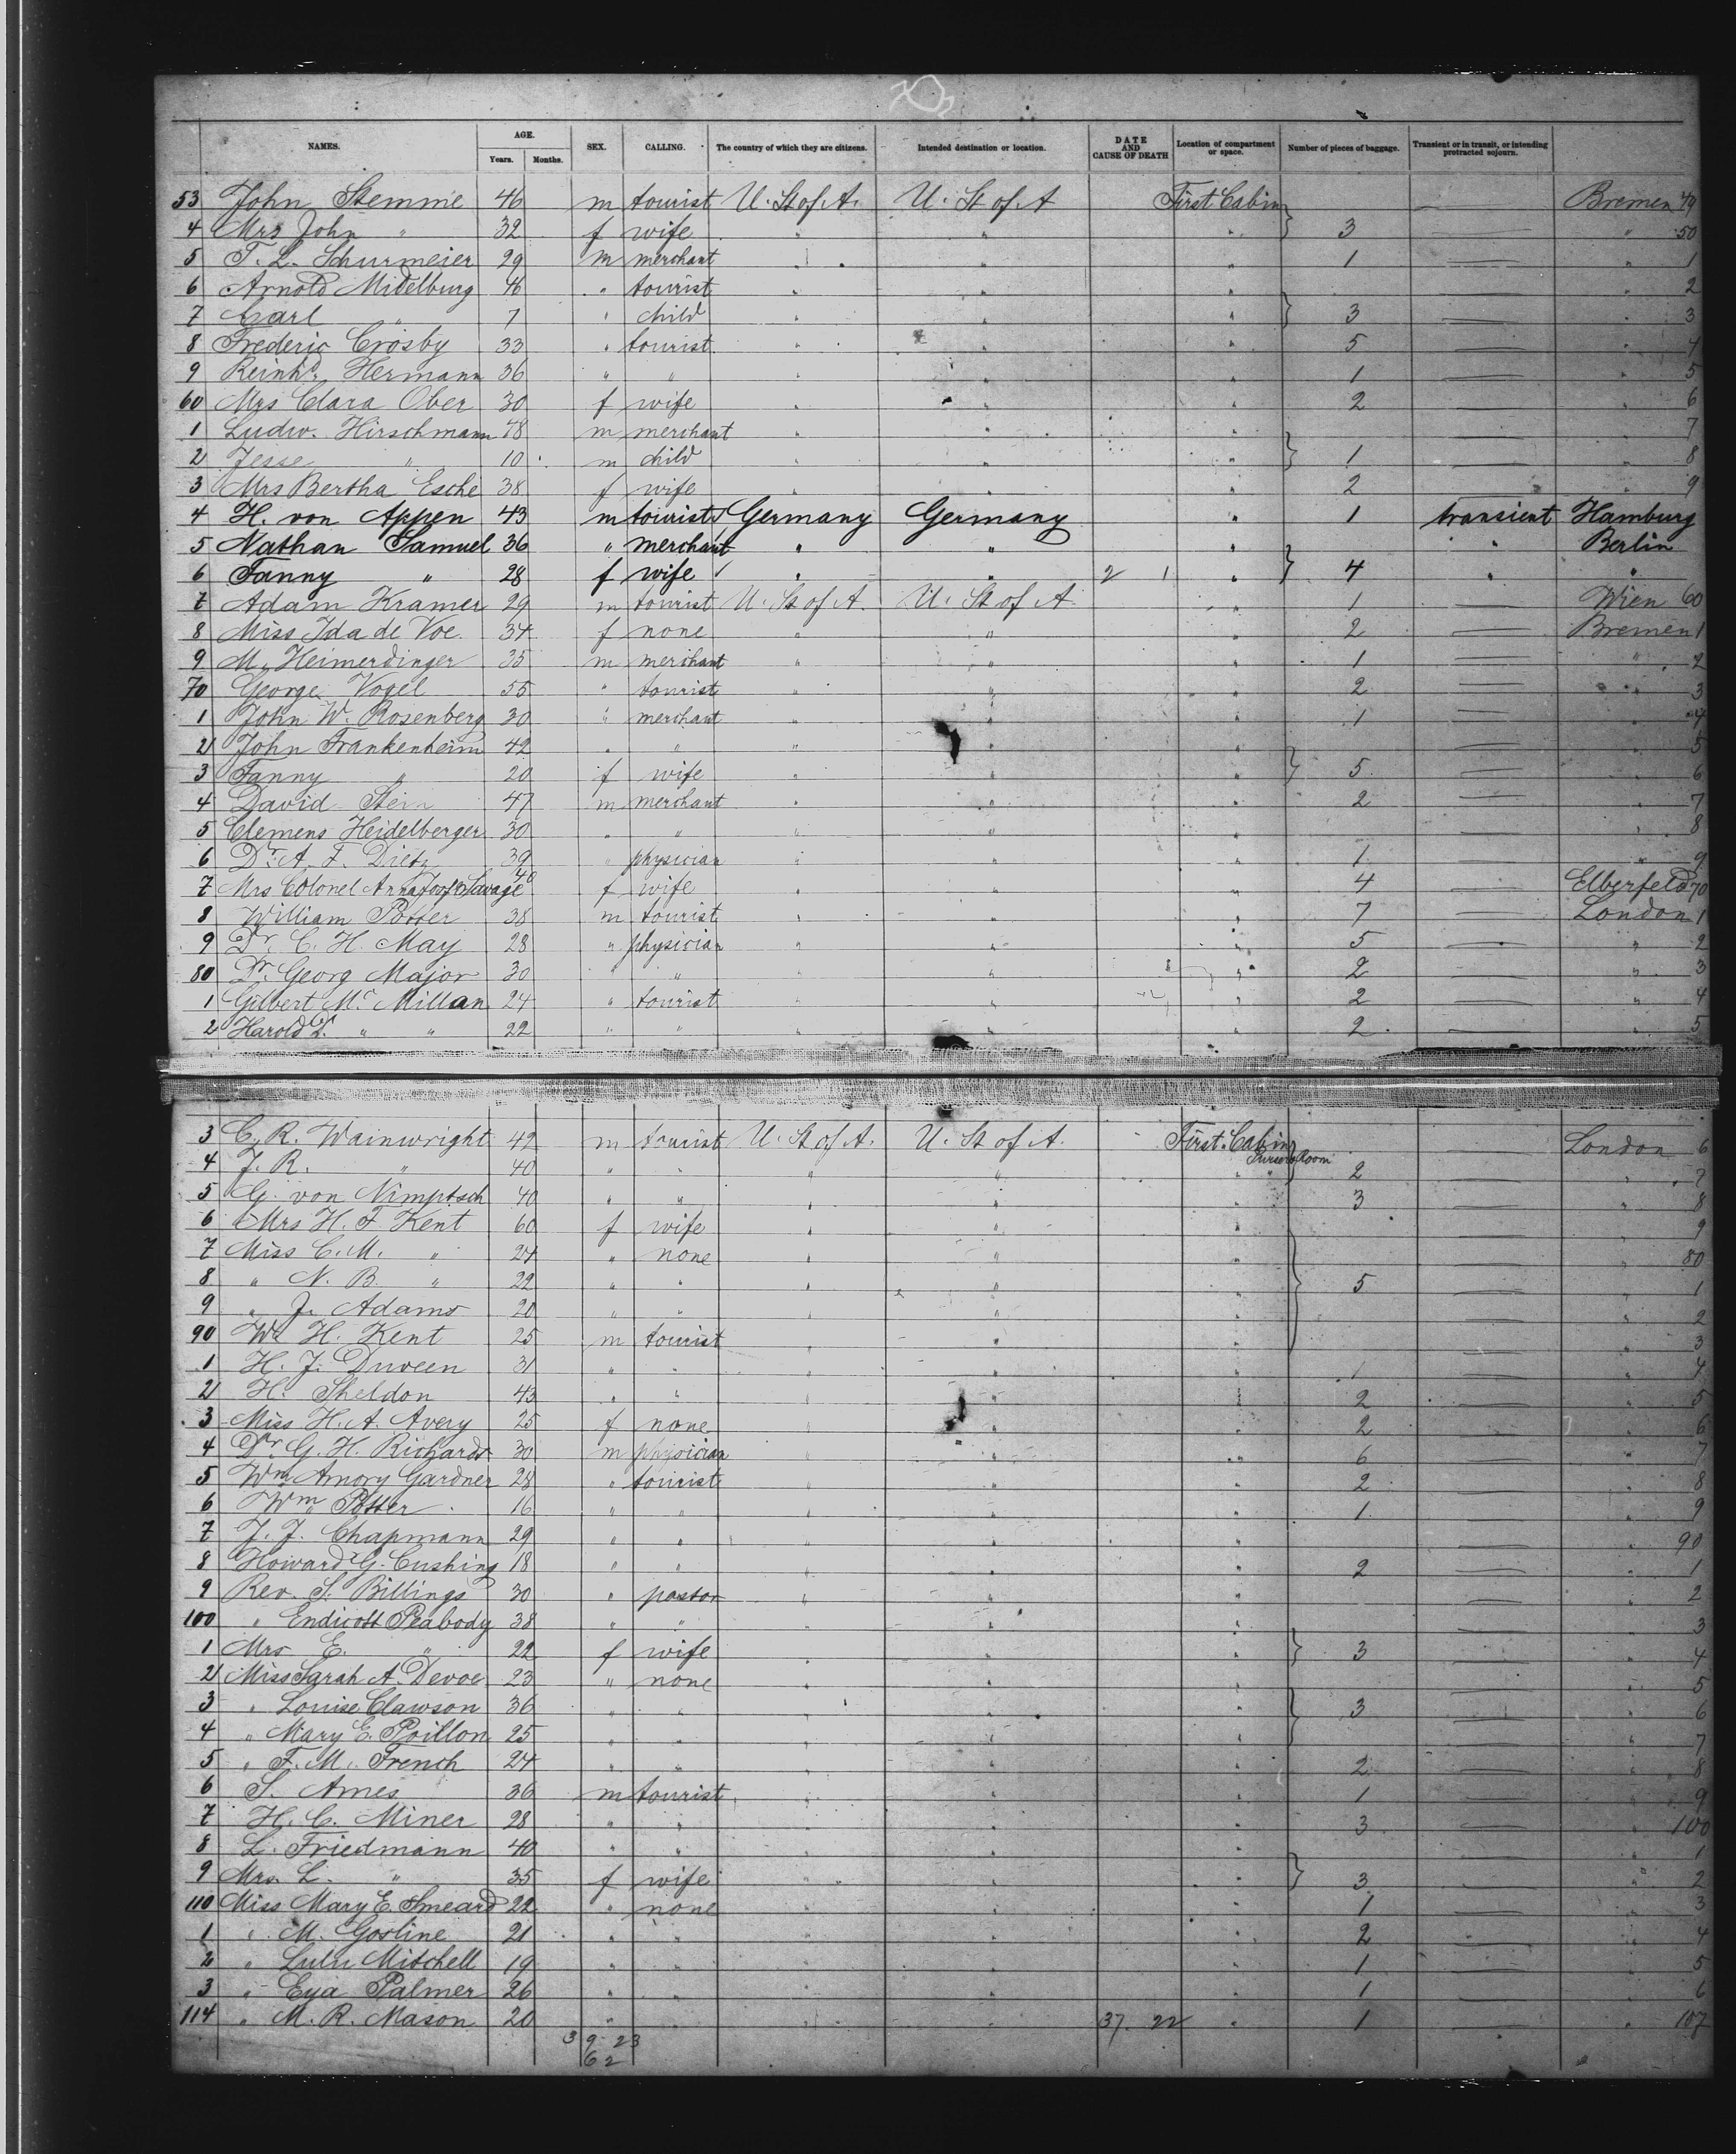 NAMES. AGE. Years. Months. SEX. CALLING. The country of which they are citizens. Intended destination or location. DATE AND CAUSE OF DEATH Location of compartment or space. Number of pieces of baggage. Transient or in transit, or intending protracted sojourn.
53 John Stemme 46 m tourist U. St of A. U. St of A First Cabin — Bremen 49
4 Mrs John " 32 f wife " " " 3 — " 50
5 F. L. Schurmeier 29 m merchant " " " 1 — " 1
6 Arnold Midelburg 46 " tourist " " " — " 2
7 Carl " 7 " child " " " 3 — " 3
8 Frederic Crosby 33 " tourist " " " 5 — " 4
9 Reinhd. Hermann 36 " " " " " 1 — " 5
60 Mrs Clara Ober 30 f wife " " " 2 — " 6
1 Ludw. Hirschmann 48 m merchant " " " — " 7
2 Jesse " 10 m child " " " 1 — " 8
3 Mrs Bertha Esche 38 f wife " " " 2 — " 9
4 H. von Appen 43 m tourist Germany Germany " 1 transient Hamburg
5 Nathan Samuel 36 " merchant " " " " Berlin
6 Fanny " 28 f wife " " 2 1 " 4 " "
7 Adam Kramer 29 m tourist U. St of A. U. St of A. " 1 — Wien 60
8 Miss Ida de Voe 34 f none " " " 2 — Bremen 1
9 M. Heimerdinger 35 m merchant " " " 1 — " 2
70 George Vogel 55 " tourist " " " 2 — " 3
1 John W. Rosenberg 30 " merchant " " " 1 — " 4
2 John Frankenheim 42 " " " " " — " 5
3 Fanny " 20 f wife " " " 5 — " 6
4 David Stern 47 m merchant " " " 2 — " 7
5 Clemens Heidelberger 30 " " " " " — " 8
6 Dr. A. F. Dietz 39 " physician " " " 1 — " 9
7 Mrs Colonel Savage 40 f wife " " " 4 — Elberfeld 70
8 William Potter 38 m tourist " " " 7 — London 1
9 Dr. C. H. May 28 " physician " " " 5 — " 2
80 Dr. Georg Major 30 " " " " " 2 — " 3
1 Gilbert Mc Millan 24 " tourist " " " 2 — " 4
2 Harold " " 22 " " " " " 2 — " 5
3 C. R. Wainwright 42 m tourist U. St of A. U. St of A. First Cabin — London 6
4 J. R. " 40 " " " " Pursers Room " 2 — " 7
5 G. von Nimptsch 40 " " " " " 3 — " 8
6 Mrs H. F. Kent 60 f wife " " " — " 9
7 Miss C. M. " 24 " none " " " — " 80
8 " N. B. " 22 " " " " " 5 — " 1
9 " J. Adams 20 " " " " " — " 2
90 W. H. Kent 25 m tourist " " " — " 3
1 H. J. Duveen 31 " " " " " 1 — " 4
2 H. Sheldon 43 " " " " " 2 — " 5
3 Miss H. A. Avery 25 f none " " " 2 — " 6
4 Dr G. H. Richards 30 m physician " " " 6 — " 7
5 Wm Amory Gardner 28 " tourist " " " 2 — " 8
6 Wm Potter 16 " " " " " 1 — " 9
7 J. J. Chapmann 29 " " " " " — " 90
8 Howard G. Cushing 18 " " " " " 2 — " 1
9 Rev. S. Billings 30 " pastor " " " — " 2
100 " Endicott Peabody 38 " " " " " — " 3
1 Mrs E. " 22 f wife " " " 3 — " 4
2 Miss Sarah A. Devoe 23 " none " " " — " 5
3 " Louise Clawson 36 " " " " " 3 — " 6
4 " Mary E. Poillon 25 " " " " " — " 7
5 " F. M. French 24 " " " " " 2 — " 8
6 S. Ames 36 m tourist " " " 1 — " 9
7 H. C. Miner 28 " " " " " 3 — " 100
8 L. Friedmann 40 " " " " " — " 1
9 Mrs. L. " 35 f wife " " " 3 — " 2
110 Miss Mary E. Smeard 22 " none " " " 1 — " 3
1 " M. Gosline 21 " " " " " 2 — " 4
2 " Lulu Mitchell 19 " " " " " 1 — " 5
3 " Eya Palmer 26 " " " " " 1 — " 6
114 " M. R. Mason 20 " " " " 37. 22 " 1 — " 107
39 23
62